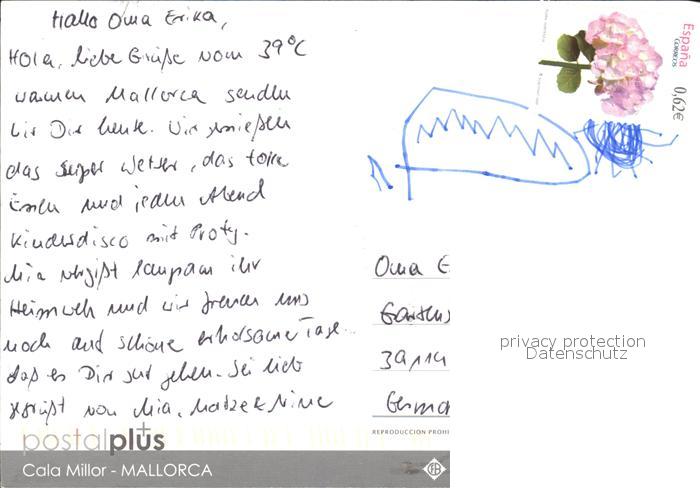 Hallo Oma Erika,
Hola, liebe Grüße vom 39°C
warmen Mallorca senden
wir Dir heute. Wir genießen
das super Wetter, das tolle
Essen und jeden Abend
Kinderdisco mit
Mia vergißt langsam ihr
Heimweh und wir freuen uns
noch auf schöne erholsame Tage...
daß es Dir gut gehen. Sei lieb
gegrüßt von Mia, Matze & Nine
España
CORREOS
0,62€
Oma E
Gartens
39114
Germa
privacy protection
Datenschutz
REPRODUCCION PROHI
postalplus
Cala Millor - MALLORCA